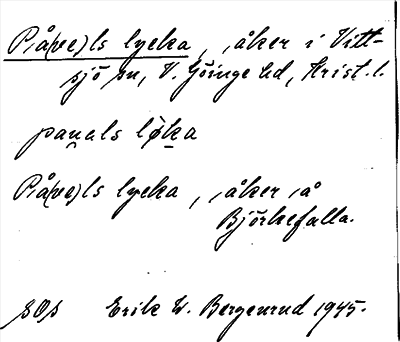 Påve(e)ls lycka, åker i Vitt-
sjö sn, V. Göinge hd, Krist. l.
paṵals lø̀ka
På(ve)ls lycka, åker å
Björkefalla.
SOS Erik W. Bergenrud 1945.